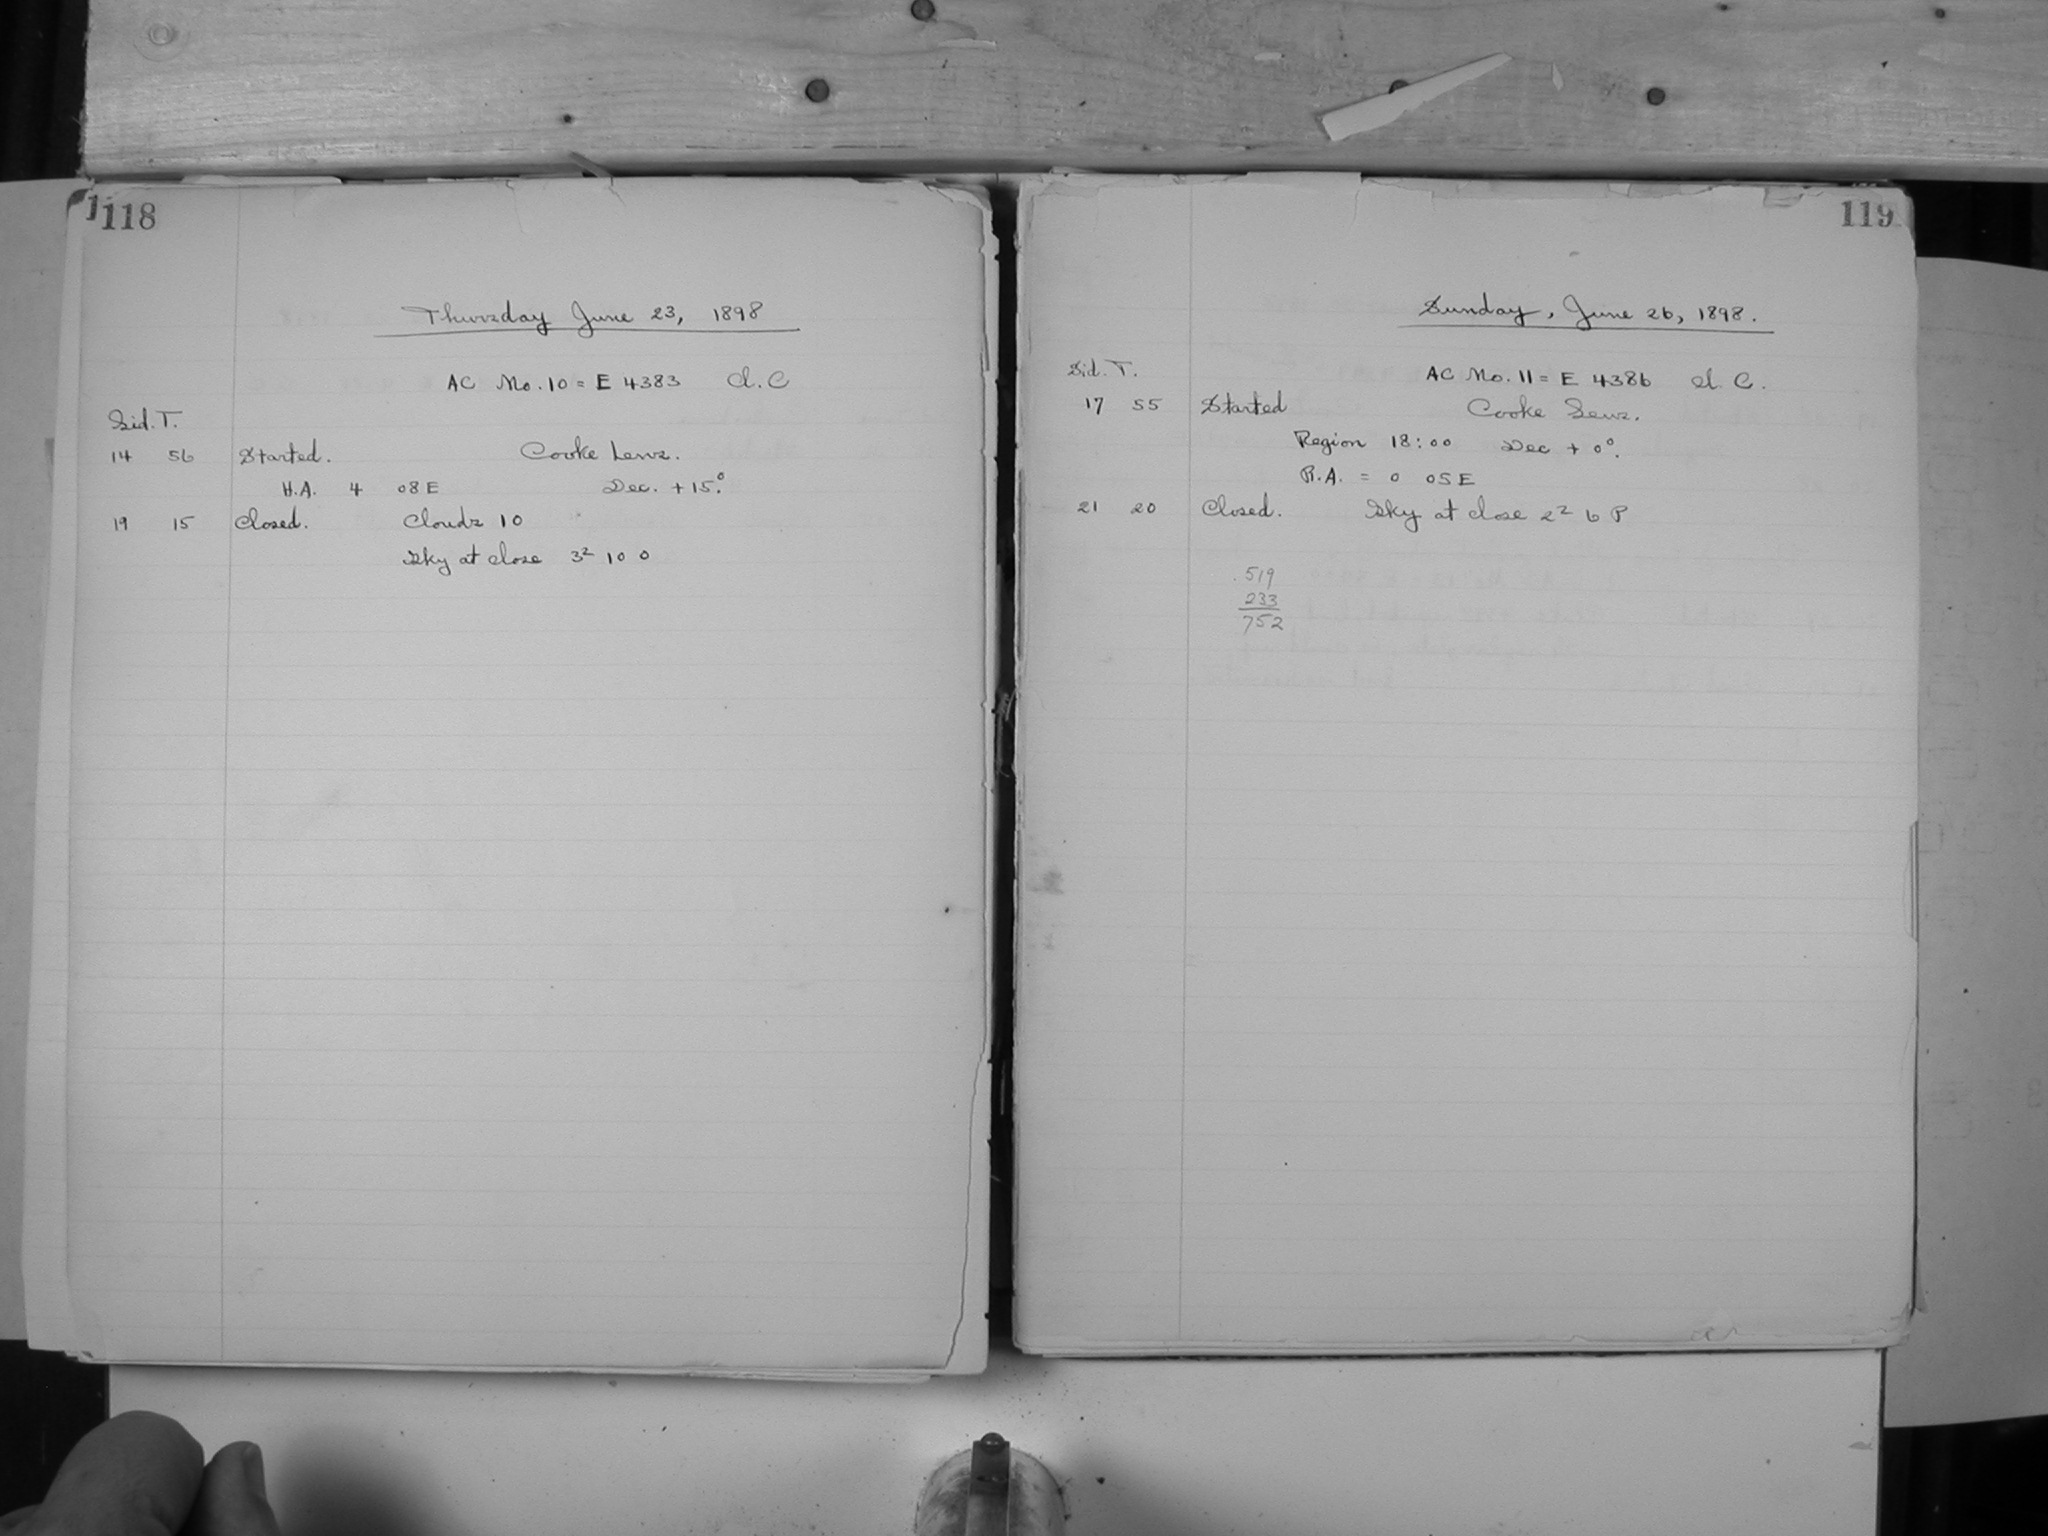 118
Thursday June 23, 1898
AC No. 10 = E 4383 Cl. C
Sid. T.
14 56 Started. Cooke Lens.
H.A. 4 08 E Dec. +15°.
19 15 Closed. Clouds 10
Sky at close 3² 10 0
119
Sunday, June 26, 1898.
Sid. T.
AC No. 11 = E 4386 Cl. C.
17 55 Started Cooke Lens.
Region 18:00 Dec + 0°.
R.A. = 0 05 E
21 20 Closed. Sky at close 2² 6 P
519
233
752